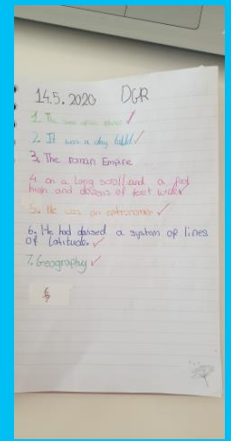 14.5.2020 DGR
1. The same
2. It was a day
3. The roman Empire
4. on a long scroll and a foot
high and dozens of feet wide
5. He was an astronomer
6. He had devised a system of lines
of latitude.
7. Geography